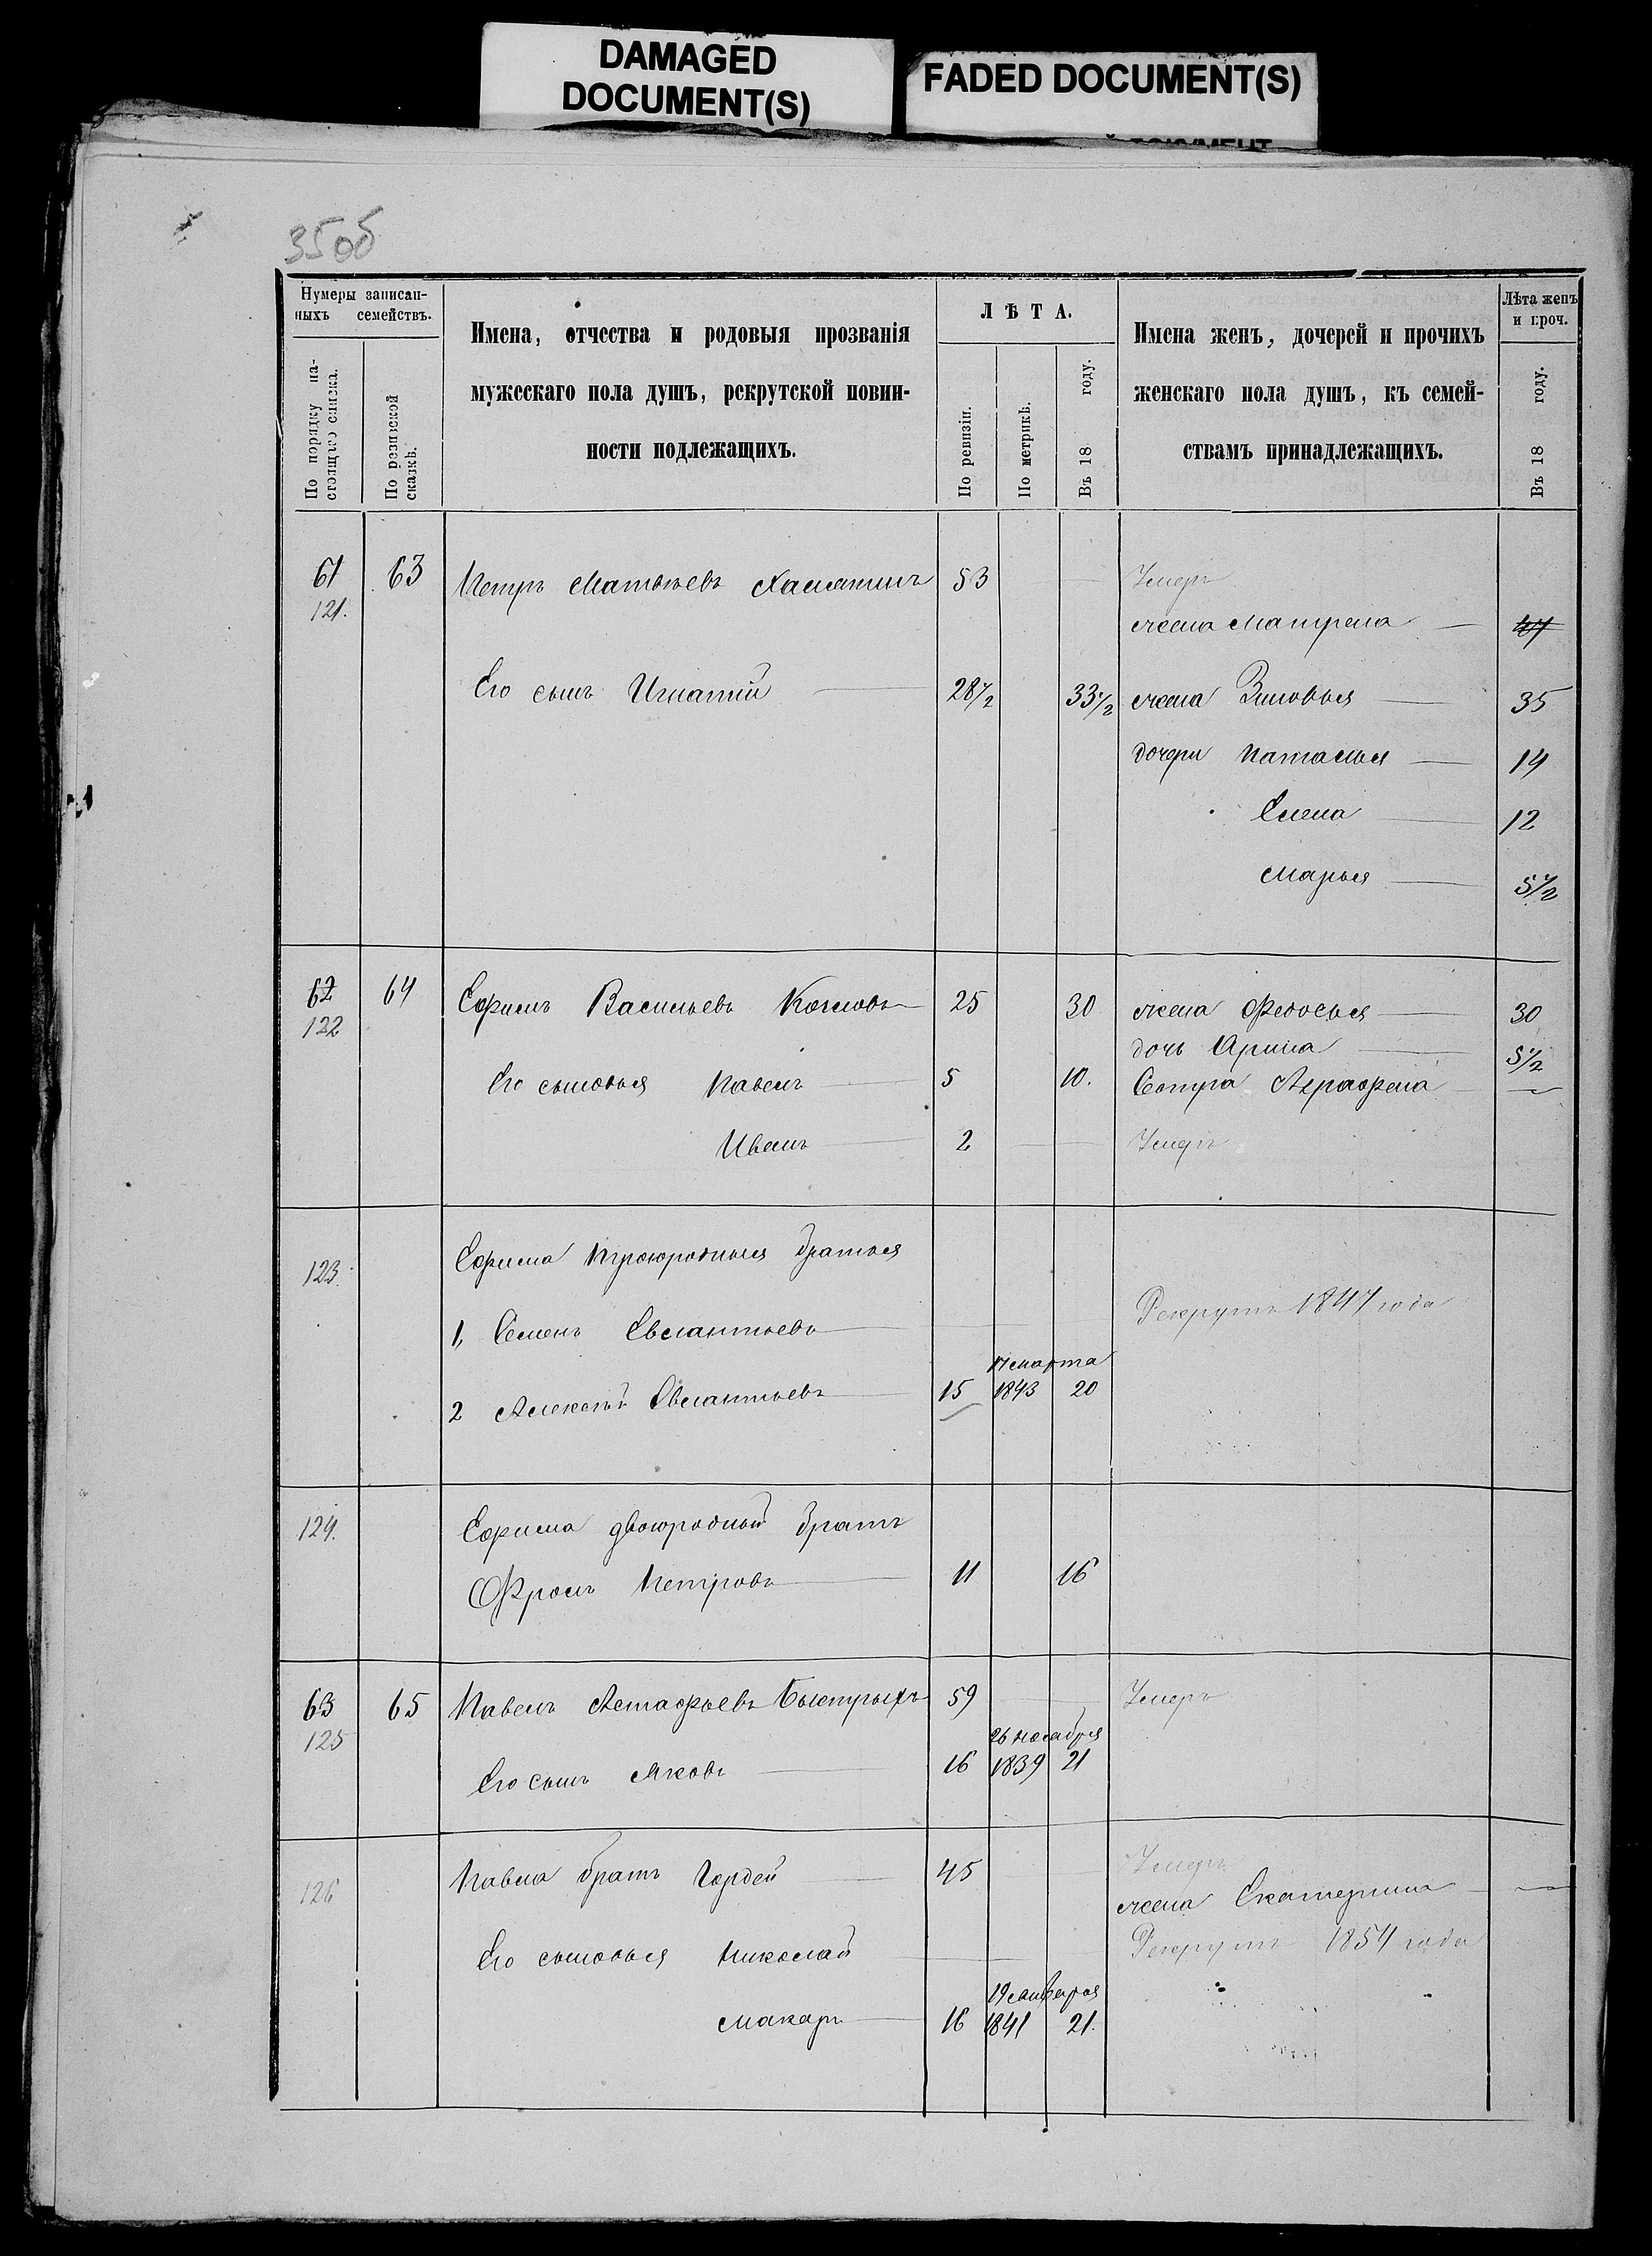 DAMAGED
DOCUMENT(S)
FADED DOCUMENT(S)
35об
Нумеры записан-
ныхъ семействъ.
По порядку на-
стоящаго списка.
По ревизской
сказкѣ.
Имена, отчества и родовыя прозванія
мужескаго пола душъ, рекрутской повин-
ности подлежащихъ.
ЛѢТА.
По ревизіи.
По метрикѣ.
Въ 18 году.
Имена женъ, дочерей и прочихъ
женскаго пола душъ, къ семей-
ствамъ принадлежащихъ.
Лѣта женъ
и проч.
Въ 18 году.
61 63 Петръ Матвѣевъ 53 Умеръ
121.
жена Матрена 47
Его сынъ Игнатій 28½ 33½ жена Зиновья 35
дочери Наталья 14
Елена 12
Марья 5½
62 64 Ефимъ Васильевъ Козловъ 25 30 жена Федосья 30
122
дочь Арина 5½
Его сыновья Павелъ 5 10. Сестра Аграфена
Иванъ 2 Умеръ
123. Ефима троюродныя братья
1, Семенъ Евлантьевъ Рекрутъ 1847 года
17 марта
2 Алексѣй Евлантьевъ 15 1843 20
124. Ефима двоюродный братъ
Фролъ Петровъ 11 16
63 65 Павелъ Астафьевъ Быстрыхъ 59 Умеръ
125
26 ноября
Его сынъ Яковъ 16 1839 21
126 Павла братъ Гордей 45 Умеръ
жена Екатерина
Его сыновья Николай Рекрутъ 1854 года
19 января
Макаръ 16 1841 21.